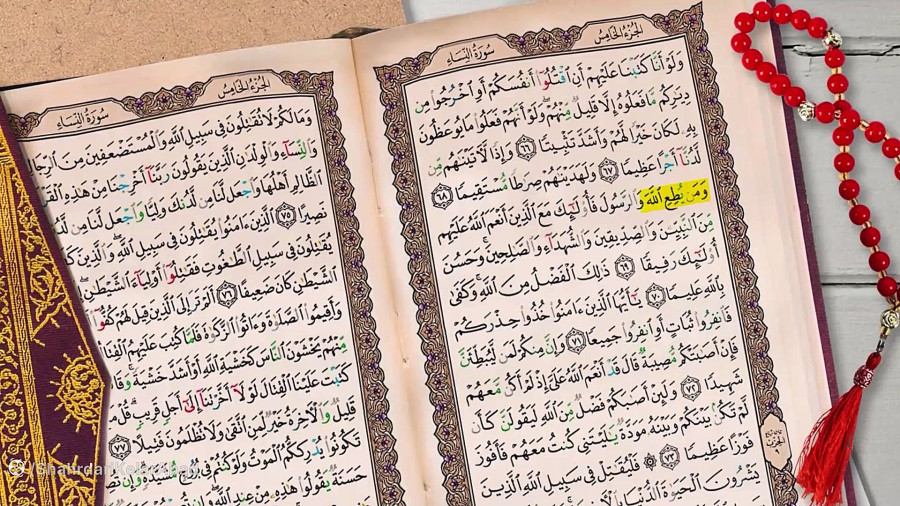 الجُزءُ الخَامِسُ
سُورَةُ النِّسَاءِ
وَلَوْ أَنَّا كَتَبْنَا عَلَيْهِمْ أَنِ ٱقْتُلُوٓا۟ أَنفُسَكُمْ أَوِ ٱخْرُجُوا۟ مِن
دِيَٰرِكُم مَّا فَعَلُوهُ إِلَّا قَلِيلٌ مِّنْهُمْ وَلَوْ أَنَّهُمْ فَعَلُوا۟ مَا يُوعَظُونَ
بِهِۦ لَكَانَ خَيْرًا لَّهُمْ وَأَشَدَّ تَثْبِيتًا ٦٦ وَإِذًا لَّءَاتَيْنَٰهُم مِّن
لَّدُنَّآ أَجْرًا عَظِيمًا ٦٧ وَلَهَدَيْنَٰهُمْ صِرَٰطًا مُّسْتَقِيمًا ٦٨
وَمَن يُطِعِ ٱللَّهَ وَٱلرَّسُولَ فَأُو۟لَٰٓئِكَ مَعَ ٱلَّذِينَ أَنْعَمَ ٱللَّهُ عَلَيْهِم
مِّنَ ٱلنَّبِيِّـۧنَ وَٱلصِّدِّيقِينَ وَٱلشُّهَدَآءِ وَٱلصَّٰلِحِينَ ۚ وَحَسُنَ
أُو۟لَٰٓئِكَ رَفِيقًا ٦٩ ذَٰلِكَ ٱلْفَضْلُ مِنَ ٱللَّهِ ۚ وَكَفَىٰ
بِٱللَّهِ عَلِيمًا ٧٠ يَٰٓأَيُّهَا ٱلَّذِينَ ءَامَنُوا۟ خُذُوا۟ حِذْرَكُمْ
فَٱنفِرُوا۟ ثُبَاتٍ أَوِ ٱنفِرُوا۟ جَمِيعًا ٧١ وَإِنَّ مِنكُمْ لَمَن لَّيُبَطِّئَنَّ
فَإِنْ أَصَٰبَتْكُم مُّصِيبَةٌ قَالَ قَدْ أَنْعَمَ ٱللَّهُ عَلَىَّ إِذْ لَمْ أَكُن مَّعَهُمْ
شَهِيدًا ٧٢ وَلَئِنْ أَصَٰبَكُمْ فَضْلٌ مِّنَ ٱللَّهِ لَيَقُولَنَّ كَأَن
لَّمْ تَكُنۢ بَيْنَكُمْ وَبَيْنَهُۥ مَوَدَّةٌ يَٰلَيْتَنِى كُنتُ مَعَهُمْ فَأَفُوزَ
فَوْزًا عَظِيمًا ٧٣ ۞ فَلْيُقَٰتِلْ فِى سَبِيلِ ٱللَّهِ ٱلَّذِينَ
يَشْرُونَ ٱلْحَيَوٰةَ ٱلدُّنْيَا
الجُزءُ الخَامِسُ
سُورَةُ النِّسَاءِ
وَمَا لَكُمْ لَا تُقَٰتِلُونَ فِى سَبِيلِ ٱللَّهِ وَٱلْمُسْتَضْعَفِينَ مِنَ ٱلرِّجَالِ
وَٱلنِّسَآءِ وَٱلْوِلْدَٰنِ ٱلَّذِينَ يَقُولُونَ رَبَّنَآ أَخْرِجْنَا مِنْ هَٰذِهِ
ٱلظَّالِمِ أَهْلُهَا وَٱجْعَل لَّنَا مِن لَّدُنكَ وَلِيًّا وَٱجْعَل لَّنَا مِن
نَصِيرًا ٧٥ ٱلَّذِينَ ءَامَنُوا۟ يُقَٰتِلُونَ فِى سَبِيلِ ٱللَّهِ ۖ وَٱلَّذِينَ
يُقَٰتِلُونَ فِى سَبِيلِ ٱلطَّٰغُوتِ فَقَٰتِلُوٓا۟ أَوْلِيَآءَ ٱلشَّيْطَٰنِ
ٱلشَّيْطَٰنِ كَانَ ضَعِيفًا ٧٦ أَلَمْ تَرَ إِلَى ٱلَّذِينَ قِيلَ لَهُمْ كُفُّوٓا۟
وَأَقِيمُوا۟ ٱلصَّلَوٰةَ وَءَاتُوا۟ ٱلزَّكَوٰةَ فَلَمَّا كُتِبَ عَلَيْهِمُ ٱلْقِتَالُ
مِّنْهُمْ يَخْشَوْنَ ٱلنَّاسَ كَخَشْيَةِ ٱللَّهِ أَوْ أَشَدَّ خَشْيَةً ۚ
كَتَبْتَ عَلَيْنَا ٱلْقِتَالَ لَوْلَآ أَخَّرْتَنَآ إِلَىٰٓ أَجَلٍ قَرِيبٍ ۗ قُلْ
قَلِيلٌ وَٱلْءَاخِرَةُ خَيْرٌ لِّمَنِ ٱتَّقَىٰ وَلَا تُظْلَمُونَ فَتِيلًا ٧٧
تَكُونُوا۟ يُدْرِككُّمُ ٱلْمَوْتُ وَلَوْ كُنتُمْ فِى
حَسَنَةٌ يَقُولُوا۟ هَٰذِهِۦ مِنْ عِندِ ٱللَّهِ ۖ